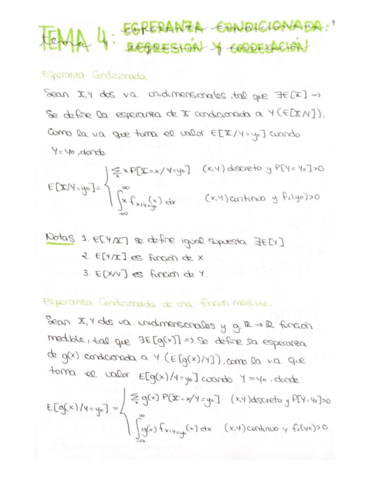 1
TEMA 4: ESPERANZA CONDICIONADA:
REGRESIÓN Y CORRELACIÓN
Esperanza Condicionada
Sean X,Y dos va unidimensionales, tal que ∃E[X] ->
Se define la esperanza de X condicionada a Y (E[X/Y]),
como la va que toma el valor E[X/Y=y₀] cuando
Y=y₀, donde
E[X/Y=y₀] = { Σₓ x P[X=x/Y=y₀] (X,Y) discreto y P[Y=y₀]>0
∫_{-∞}^{∞} x f_{X/Y=y₀}(x) dx (X,Y) continuo y f_Y(y₀)>0
Notas 1. E[Y/X] se define igual supuesta ∃E[Y]
2. E[Y/X] es función de X
3. E[X/Y] es función de Y.
Esperanza Condicionada de una función medible.
Sean X,Y dos va unidimensionales y g: R -> R función
medible, tal que ∃E[g(X)] => Se define la esperanza
de g(X) condicionada a Y (E[g(X)/Y]), como la va que
toma el valor E[g(X)/Y=y₀] cuando Y=y₀, donde
E[g(X)/Y=y₀] = { Σₓ g(x) P[X=x/Y=y₀] (X,Y) discreto y P[Y=y₀]>0
∫_{-∞}^{∞} g(x) f_{X/Y=y₀}(x) dx (X,Y) continuo y f_Y(y₀)>0